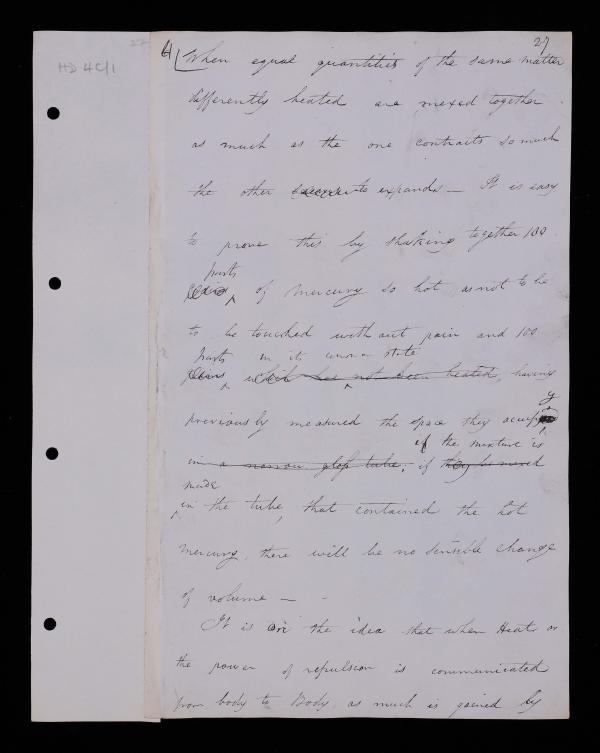 27
HD 4C/1
4 When equal quantities of the same matter
differently heated are mexed together
as much as the one contracts so much
the other expands — It is easy
to prove this by shaking together 100
parts
of mercury so hot as not to be
to be touched without pain and 100
parts in its state
which has not been heated, having
previously measured the space they occupy
if the mixture is
in a narrow glass tube; if they be mixed
made
in the tube, that contained the hot
mercury, there will be no sensible change
of volume — -
It is on the idea that when Heat or
the power of repulsion is communicated
from body to Body, as much is gained by